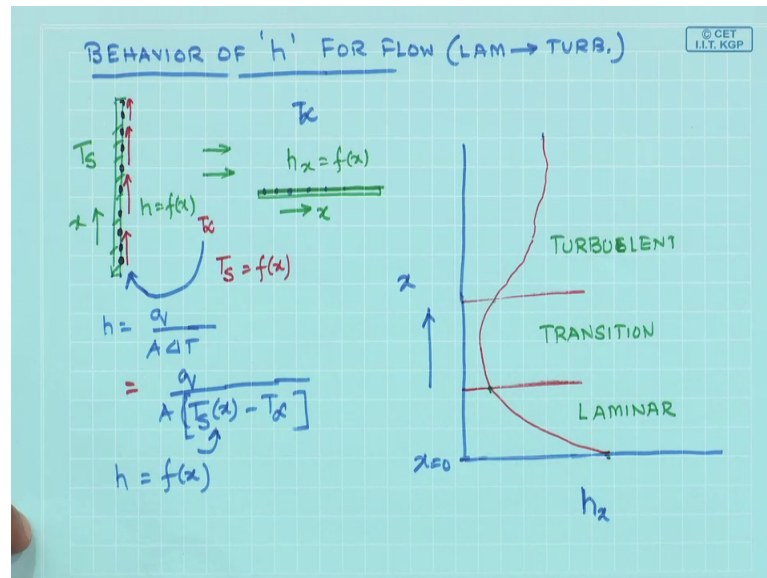 BEHAVIOR OF 'h' FOR FLOW (LAM → TURB.)
© CET
I.I.T. KGP
Ts
x
h=f(x)
T∝
Ts = f(x)
T∝
hx = f(x)
→ x
h = q / A ΔT
= q / A [Ts(x) - T∝]
h = f(x)
x
TURBULENT
TRANSITION
LAMINAR
x=0
hx